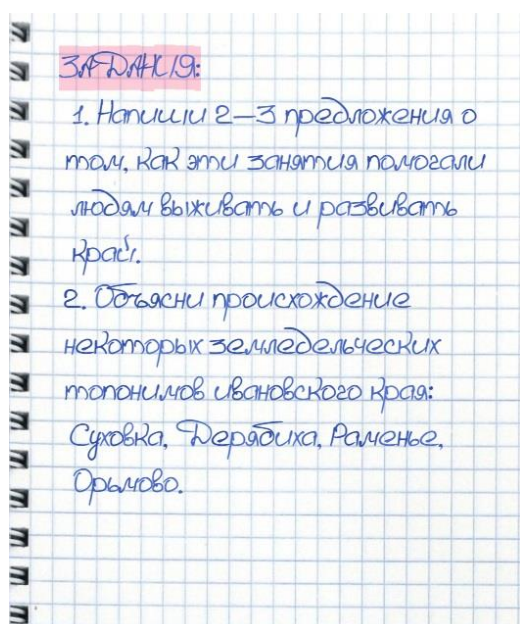 ЗАДАНИЯ:
1. Напиши 2—3 предложения о
том, как эти занятия помогали
людям выживать и развивать
край.
2. Объясни происхождение
некоторых земледельческих
топонимов ивановского края:
Суховка, Дерябиха, Раменье,
Орьмово.